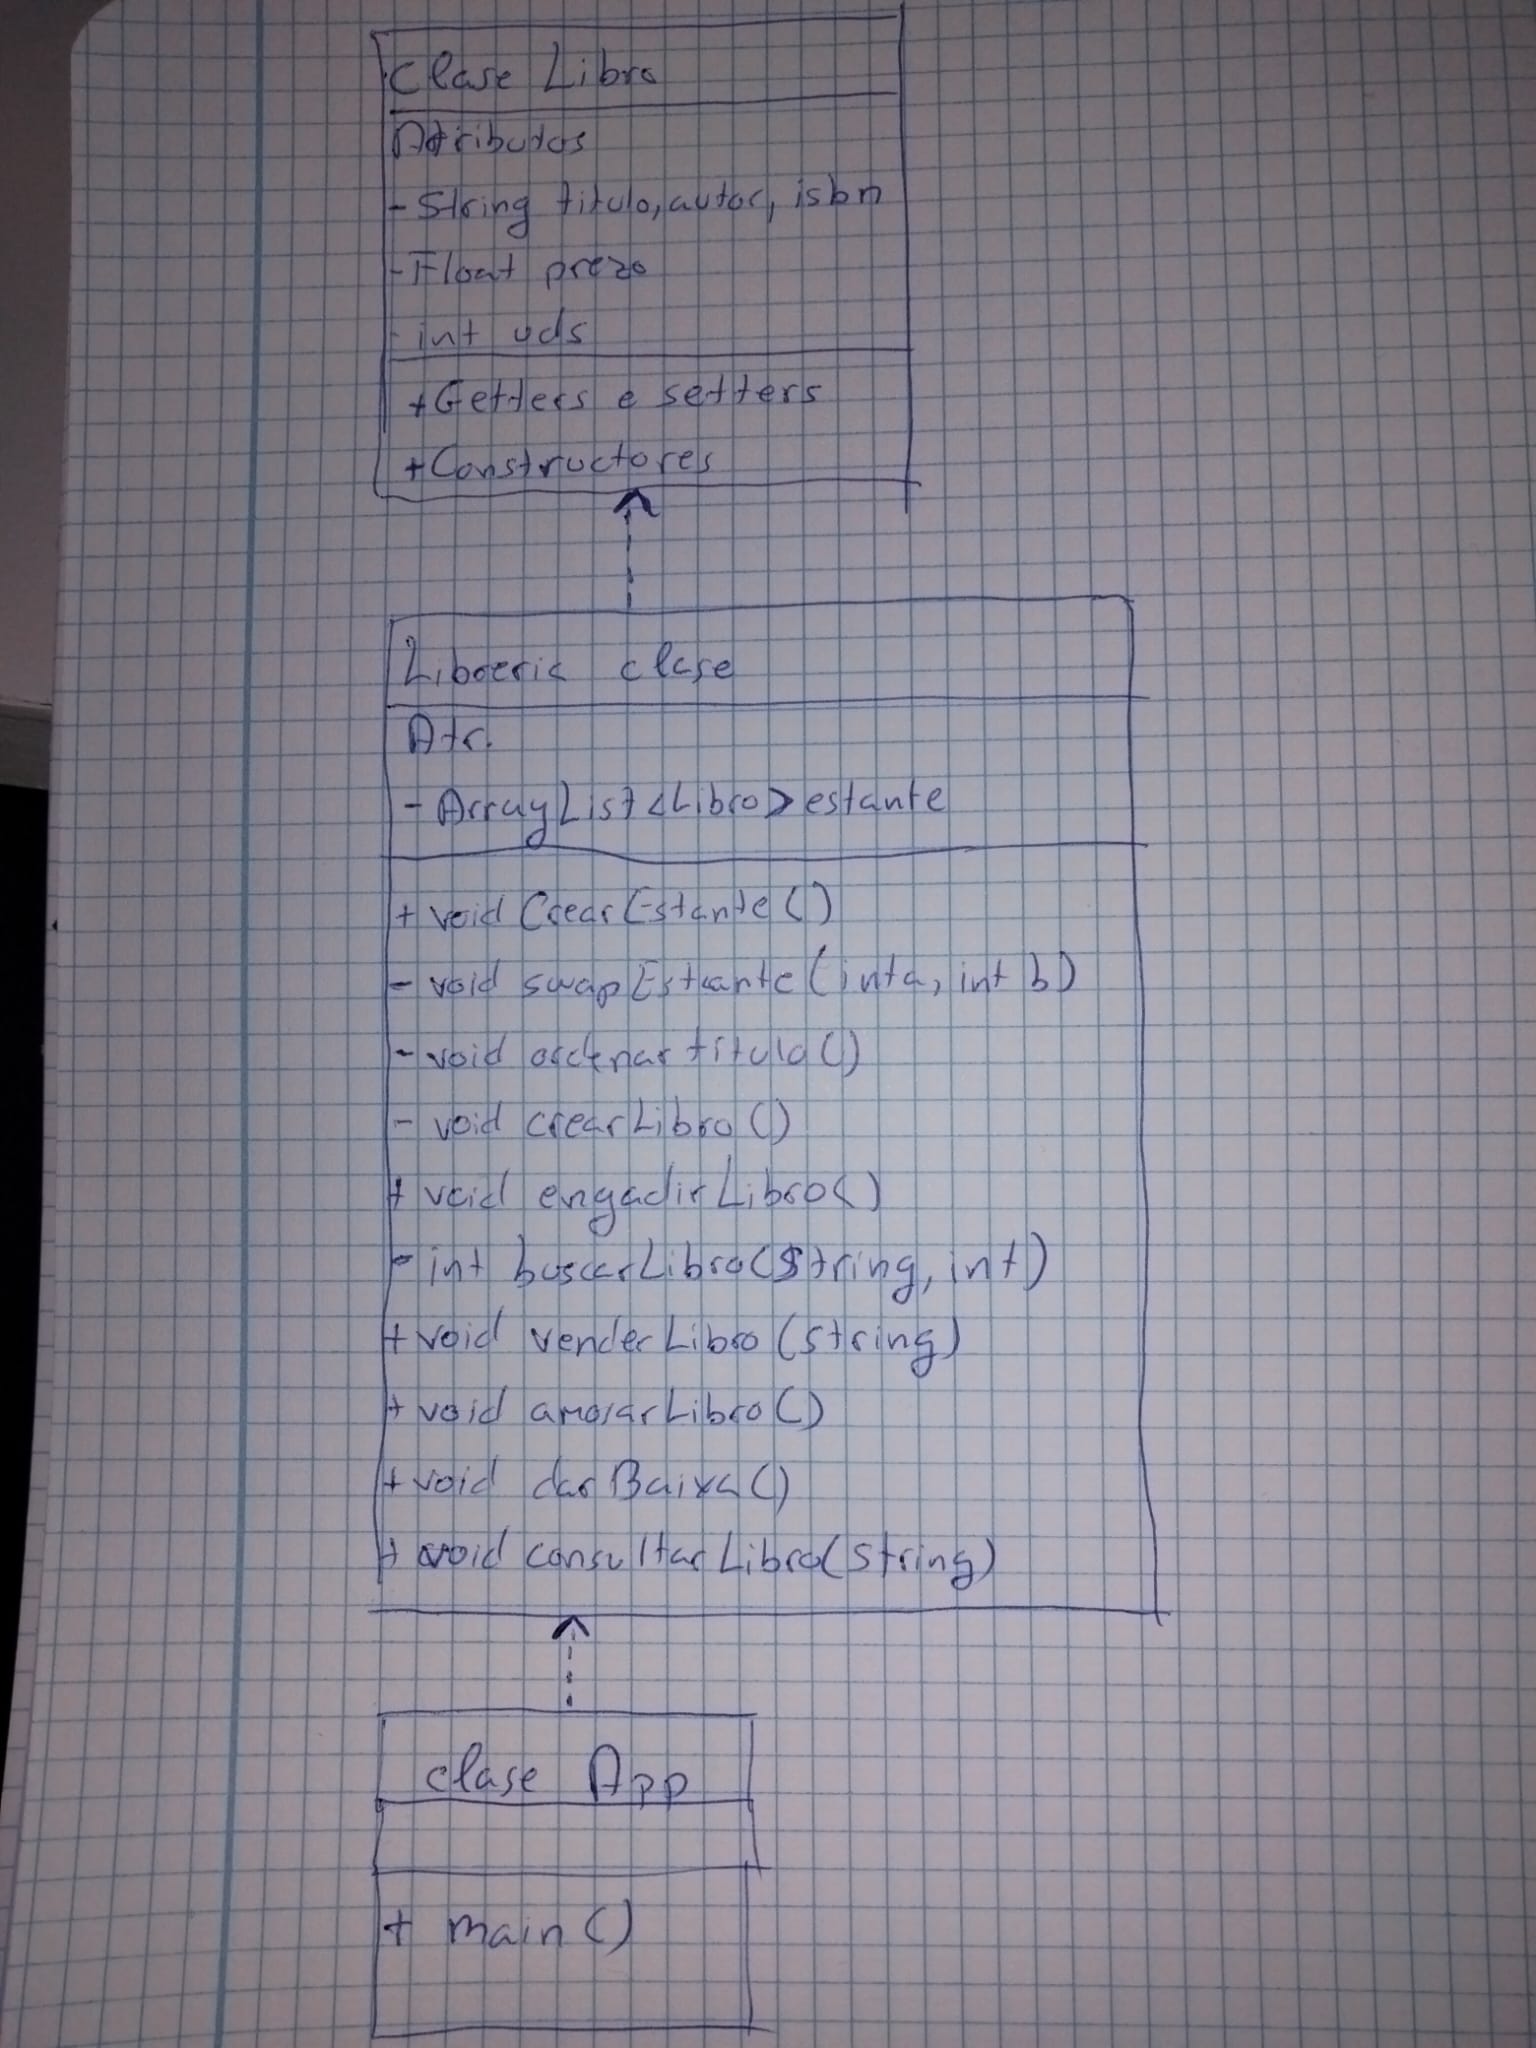 Clase Libro
Atributos
- String titulo, autor, isbn
- Float prezo
- int uds
+ Getters e setters
+ Constructores
Libreria clase
Atr.
- ArrayList<Libro> estante
+ void CrearEstante()
- void swapEstante(int a, int b)
- void ordenar titulo()
- void crearLibro()
+ void engadirLibro()
- int buscarLibro(String, int)
+ void venderLibro(String)
+ void amosarLibro()
+ void darBaixa()
+ void consultarLibro(String)
clase App
+ main()